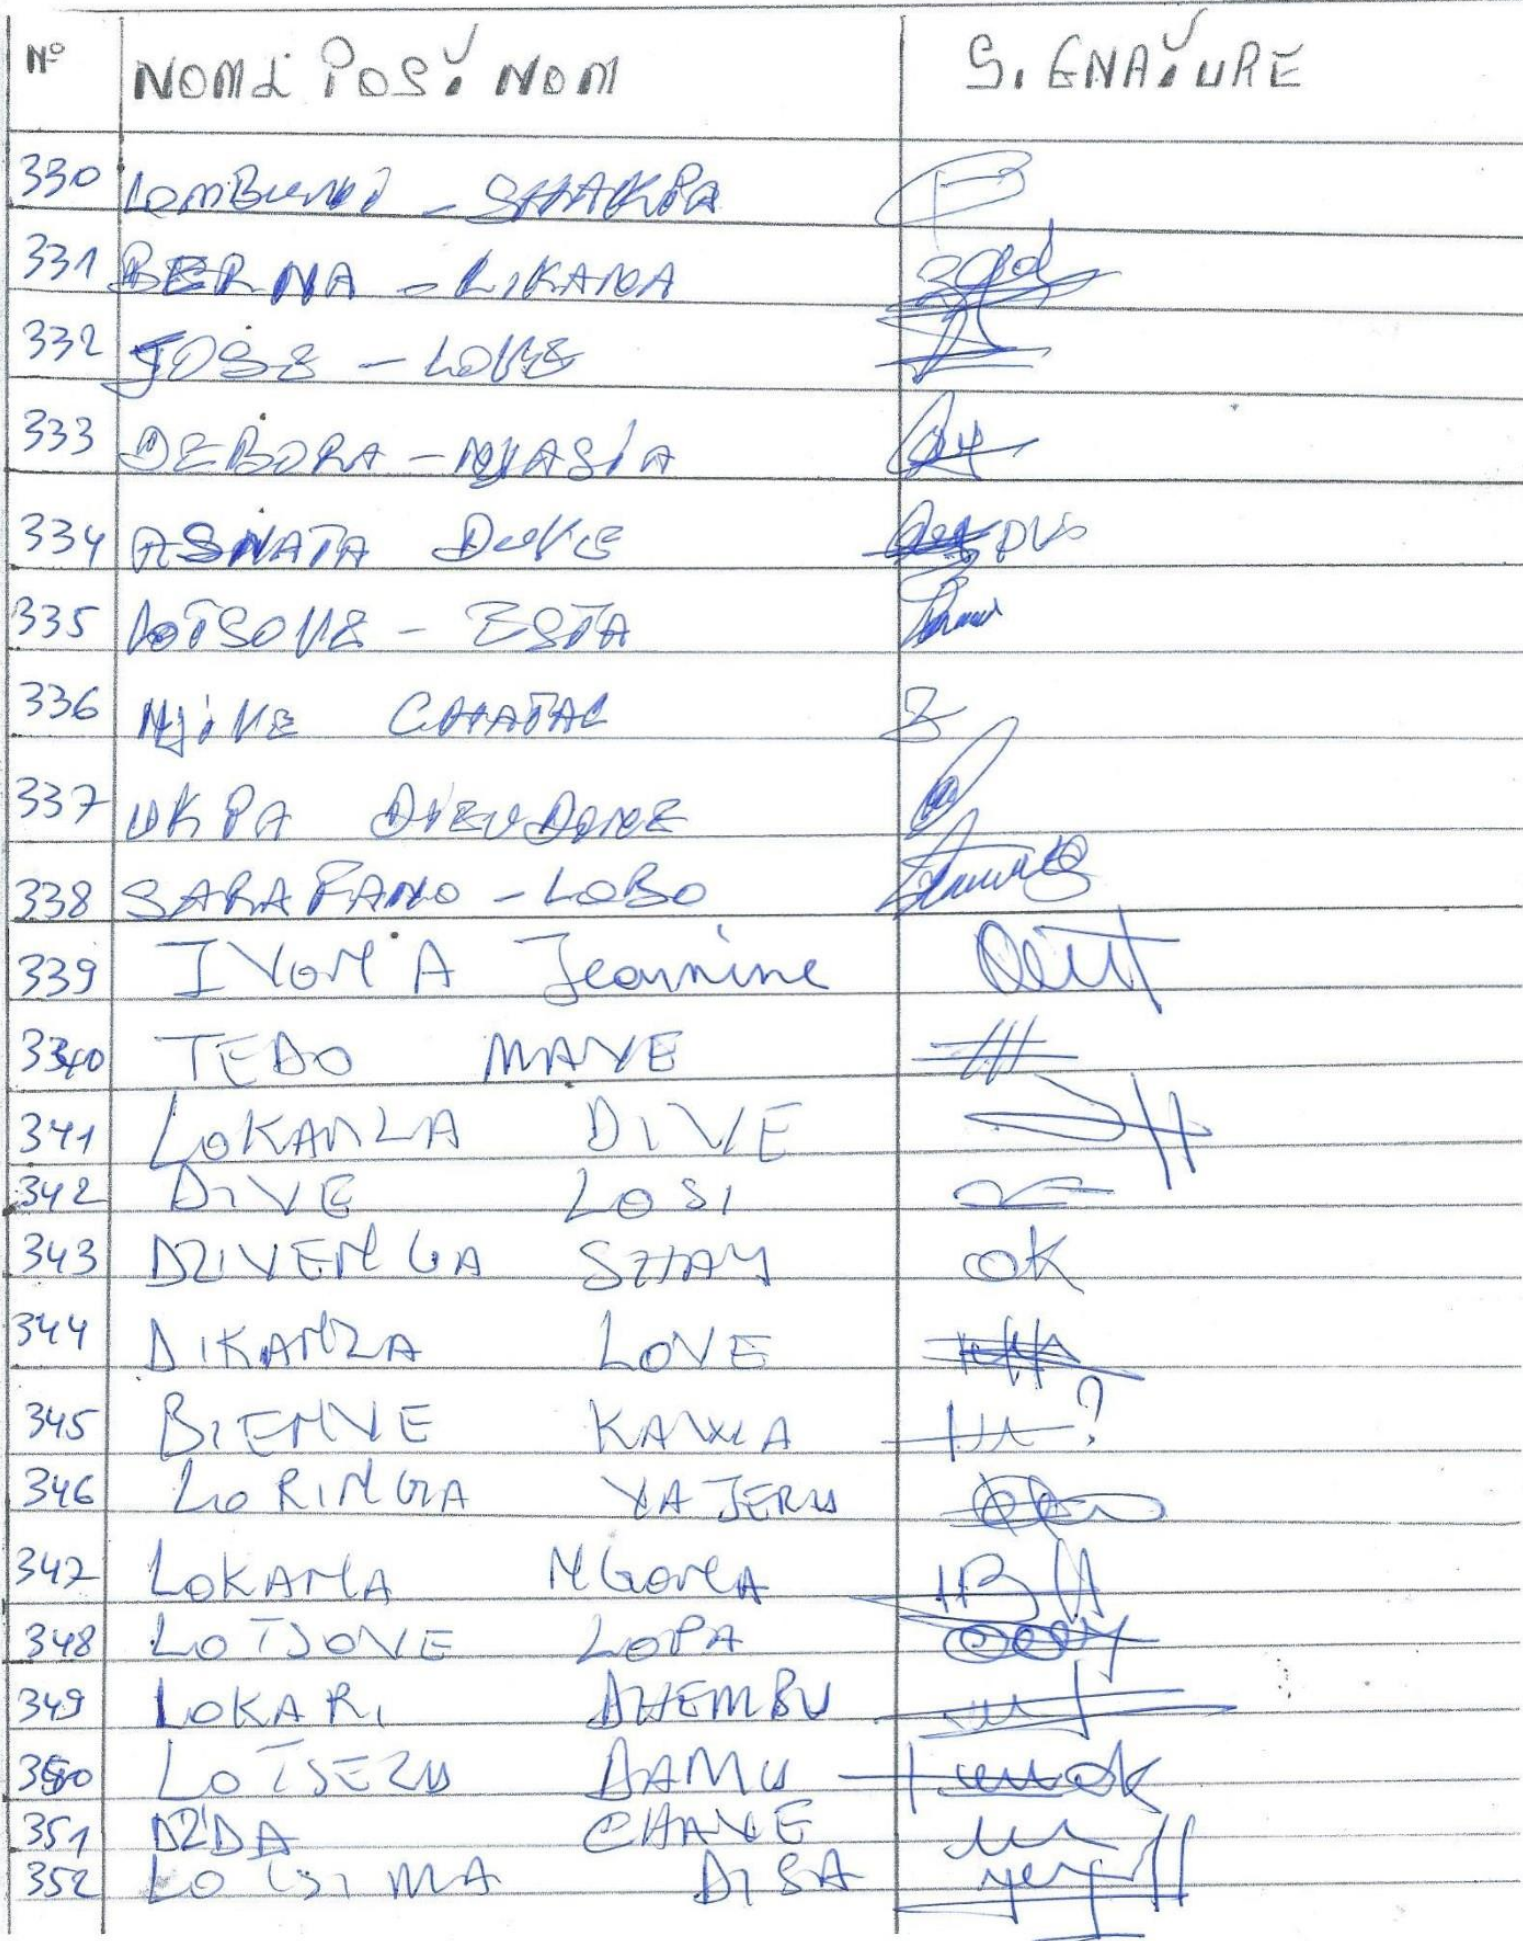 N° NOM & POST. NOM SIGNATURE
330 LOMBUNI - SHAKPA
331 BERNA - LIKANA
332 JOSE - LOVE
333 DEBORA - NJASIA
334 ASNATA DUVE
335 LOTSOVE - ESTA
336 NJIVE CHATAC
337 UKPA DIEUDONE
338 SARAFANO - LOBO
339 IVONA Jeannine
340 TEDO MAVE
341 LOKANZA DIVE
342 DIVE LOSI
343 DZIVENGA SZIAY OK
344 DIKANZA LOVE
345 BIENVE KAWA
346 LORINGA YAJERU
347 LOKANA NGONA
348 LOTSOVE LOPA
349 LOKARI DHEMBU
350 LOTSEZU DAMU
351 DZDA CHAVE
352 LOTSIMA DISA